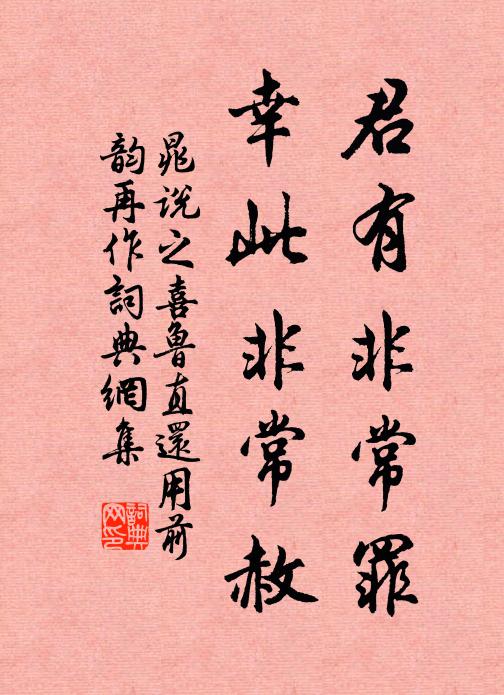 君有非常罪
幸此非常赦
晁說之喜魯直還用前
韵再作詞典網集
詞典
网印